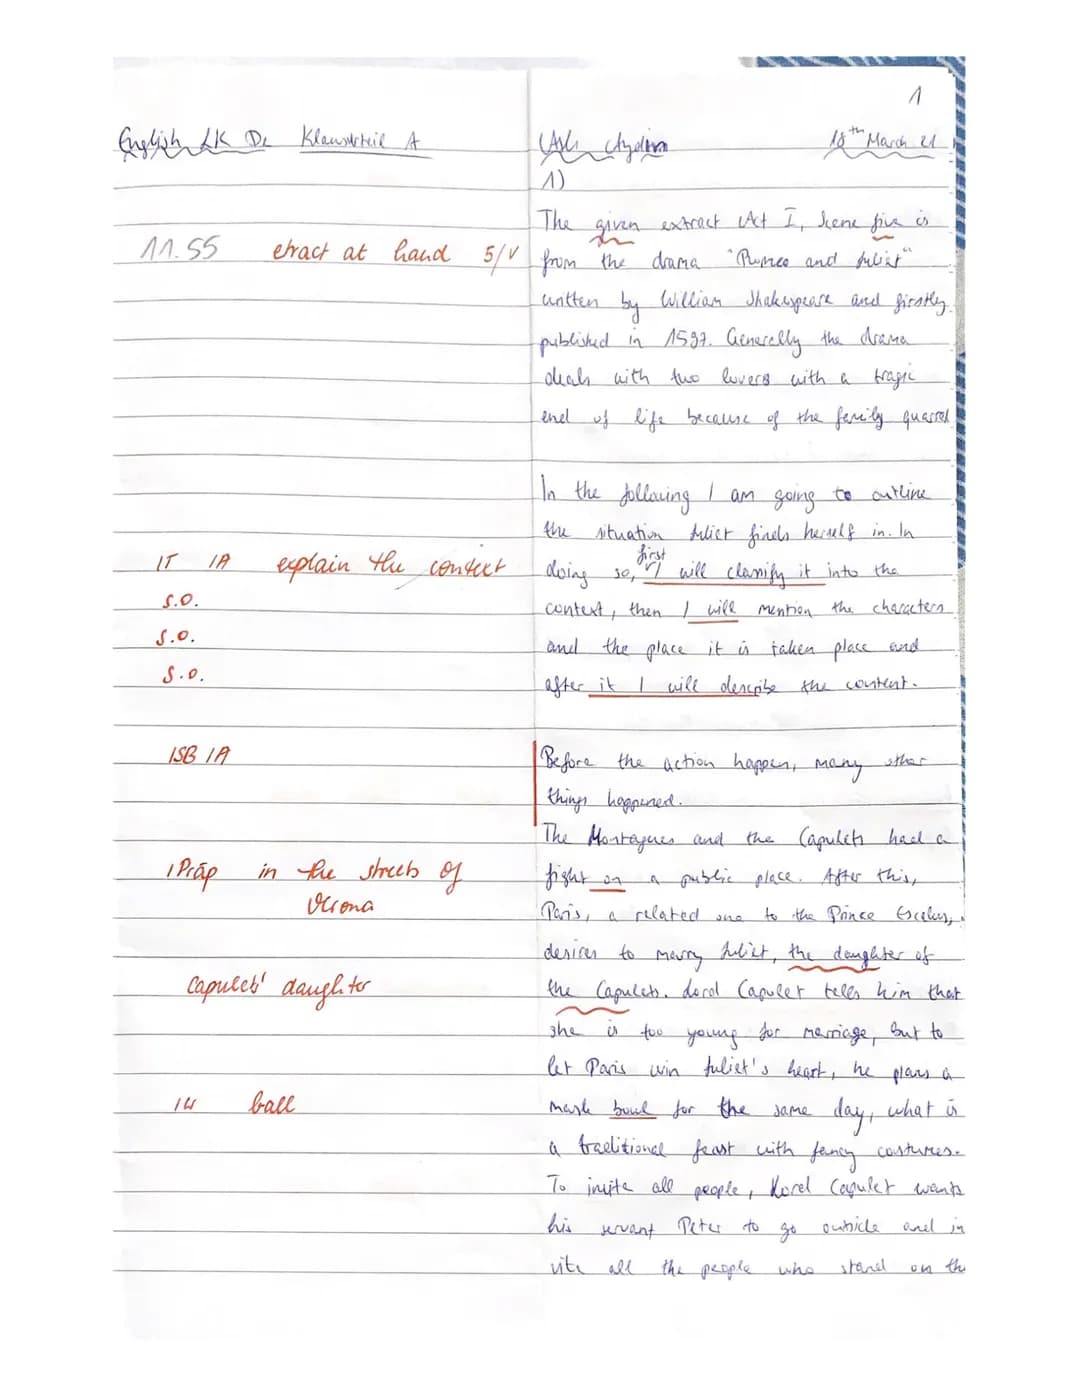 1
English LK Dr Klausurteil A
18th March 21
1)
The given extract Act I, Scene five is
11.55 etract at hand 5/V
from the drama "Romeo and Juliet"
written by William Shakespeare and firstly
published in 1597. Generally the drama
deals with two lovers with a tragic
end of life because of the family quarrel
In the following I am going to outline
the situation Juliet finds herself in. In
IT 1A explain the context
doing so, first I will classify it into the
S.O.
context, then I will mention the characters
S.O.
and the place it is taken place and
S.O.
after it I will describe the content.
ISB 1A
Before the action happen, many other
things happened.
The Montagues and the Capulets had a
1 Präp in the streets of
Verona
fight on a public place. After this,
Paris, a related one to the Prince Escalus,
desires to marry Juliet, the daughter of
Capulets' daughter
the Capulets. Lord Capulet tells him that
she is too young for marriage, but to
let Paris win Juliet's heart, he plans a
1W ball
mask bowl for the same day, what is
a traditional feast with fancy costumes.
To invite all people, Lord Capulet wants
his servant Peter to go outside and in
vite all the people who stand on the